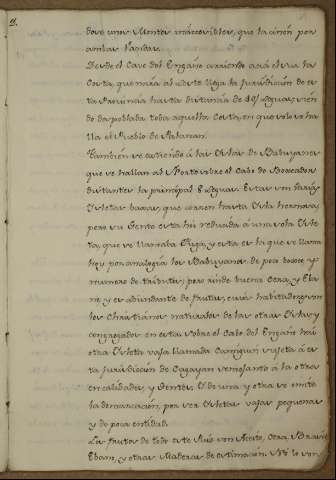 9.
dose unos Montes inaccesibles, que la ciñen por
ambas faldas.
Desde el Cavo del Engaño corriendo acia el sur la
Costa, que mira al Leste llega la Jurisdición de es
ta Provincia hasta distancia de leguas, sien
do despoblada toda aquella Costa, en que solo se ha
lla el Pueblo de Palanan.
Tambien se estiende á las Yslas de Babuyanes
que se hallan al Norte sobre el Cabo de Boxeador
distantes la principal 8 leguas. Estas son
Ysletas baxas, que corren hasta Ysla hermosa,
pero su Gente esta hoi reducida á una sola Ysle
ta, que se llamaba Fuga, y esta es la que se llama
hoy por analogía los Babuyanes de poco bosque y
numero de tributos; pero rinde buena Cera, y Eba
no y es abundante de frutas, cuios habitadores son
los Christianos naturales de las otras Yslas y
congregados en esta sobre el Cabo del Engaño hai
otra Ysleta vaja llamada Camiguin sujeta á es
ta Jurisdicion de Cagayan semejante á la otra
en calidades, y Gentes. De una y otra se omite
la demarcación, por ser Ysletas vajas pequeñas
y de poca entidad.
Los frutos de todo este Pais son Aceite, Cera, Brasil
Ebano, y otras Maderas de estimacion. No lo son